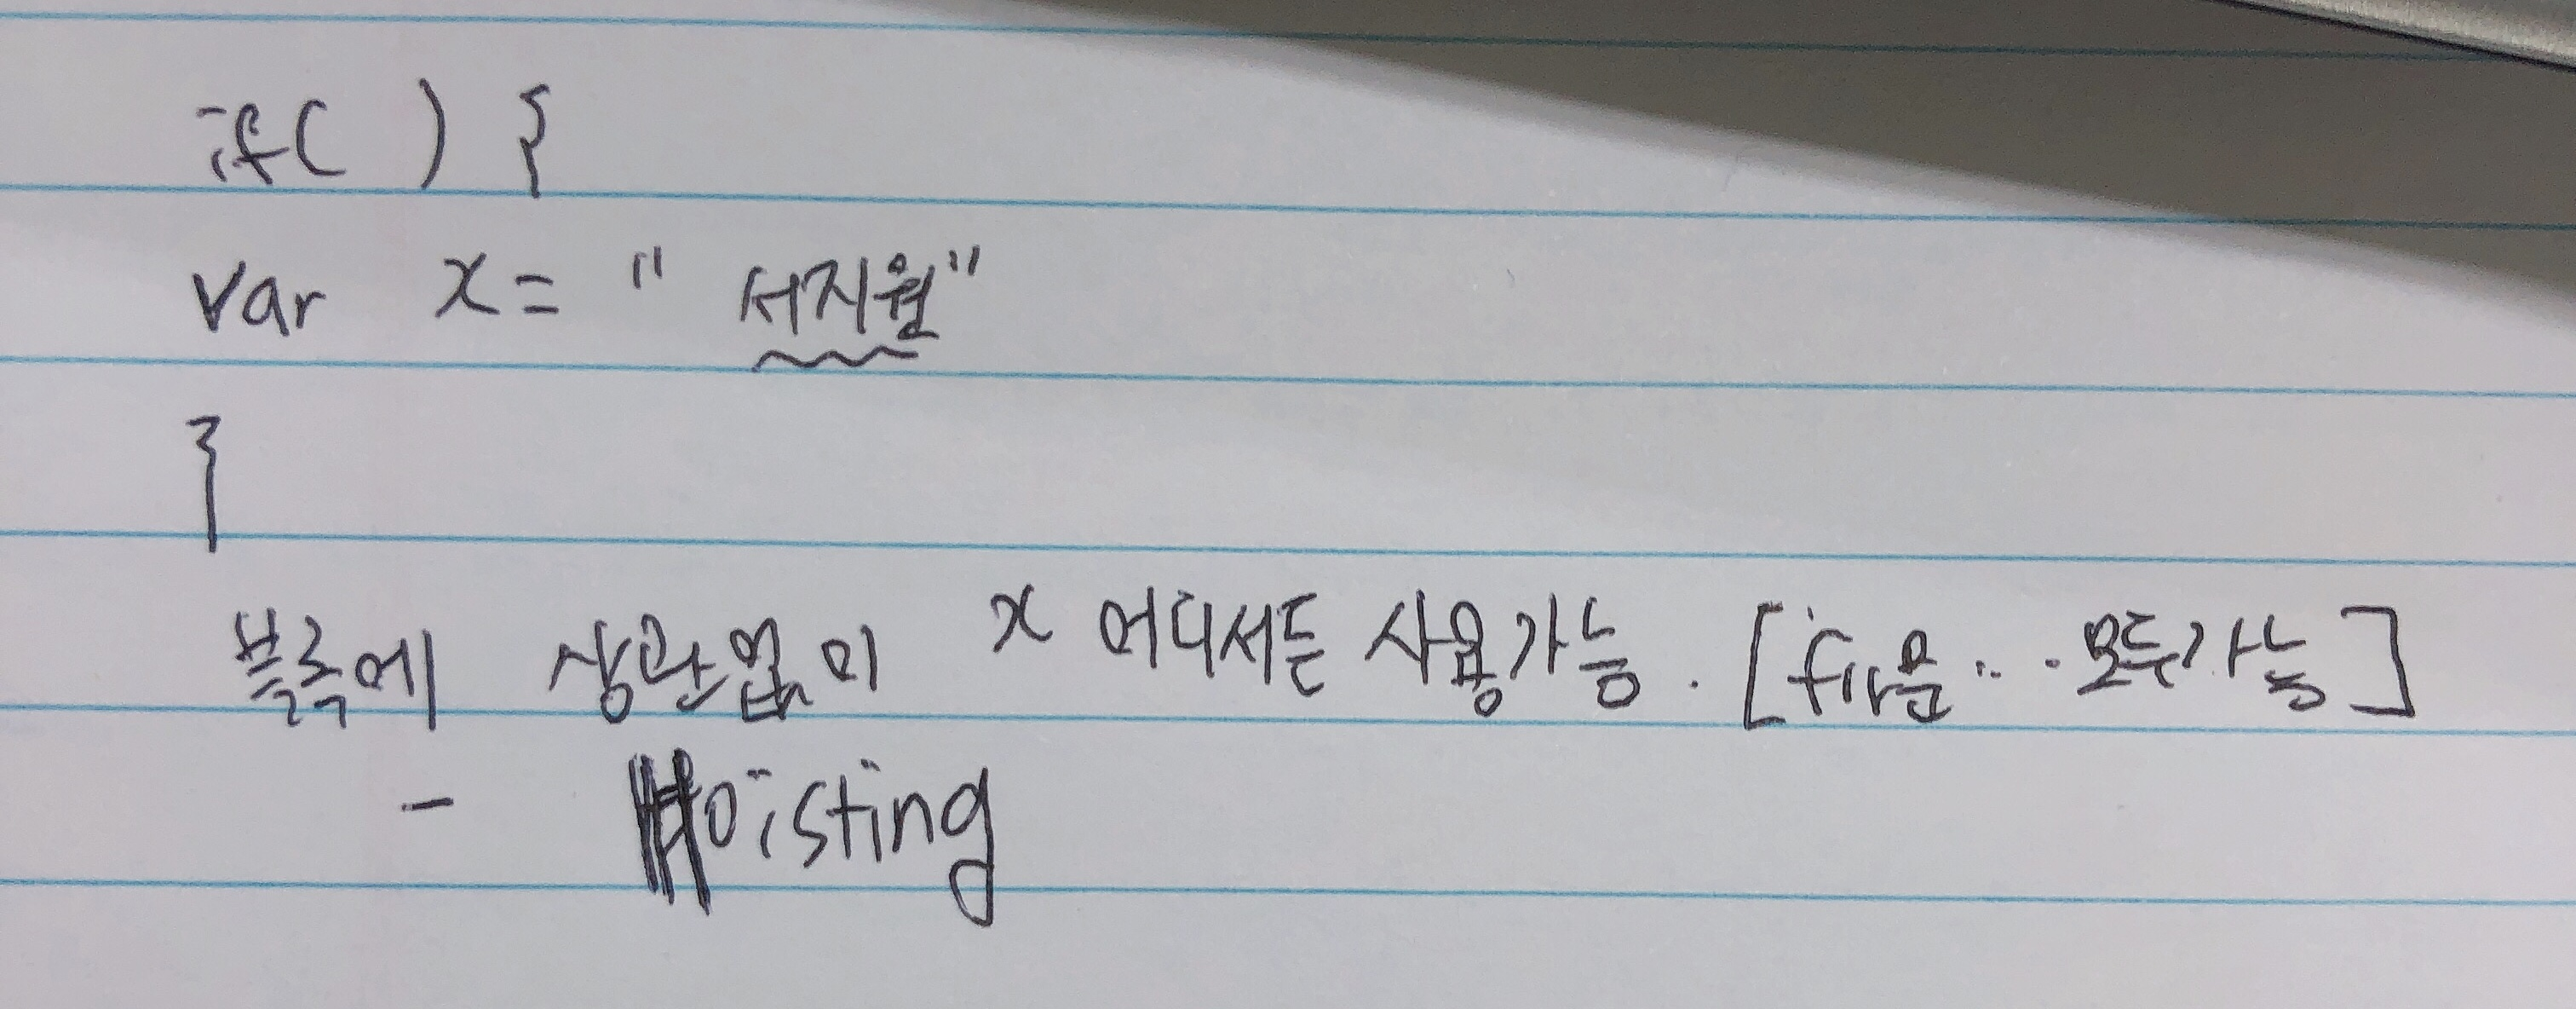 if( ) {
var x = " 서지원"
}
블록에 상관없이 x 어디서든 사용가능. [for문 ... 모두가능]
- Hoisting